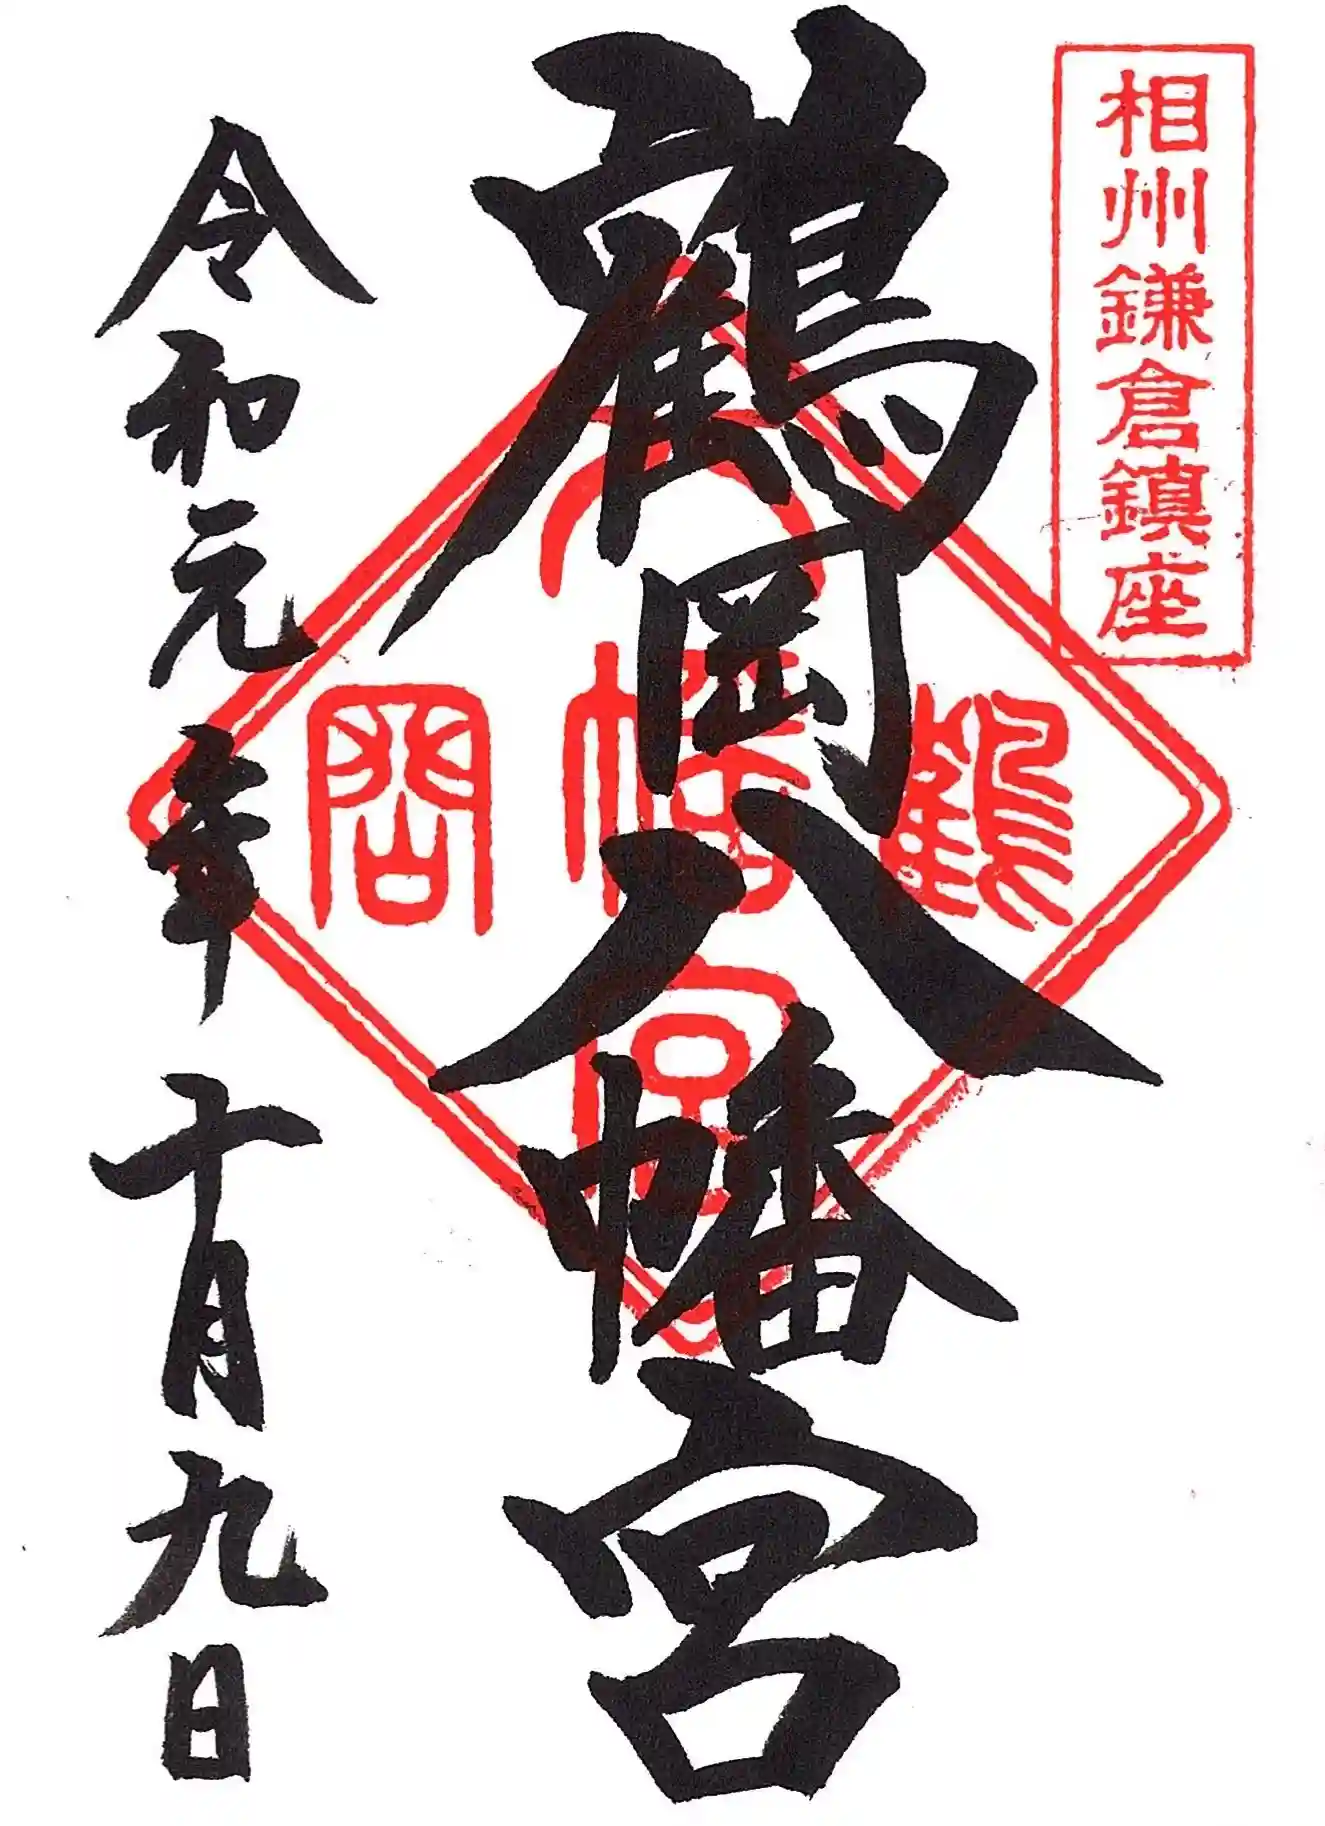 相州鎌倉鎮座
鶴岡八幡宮
鶴岡八幡宮
令和元年十月九日